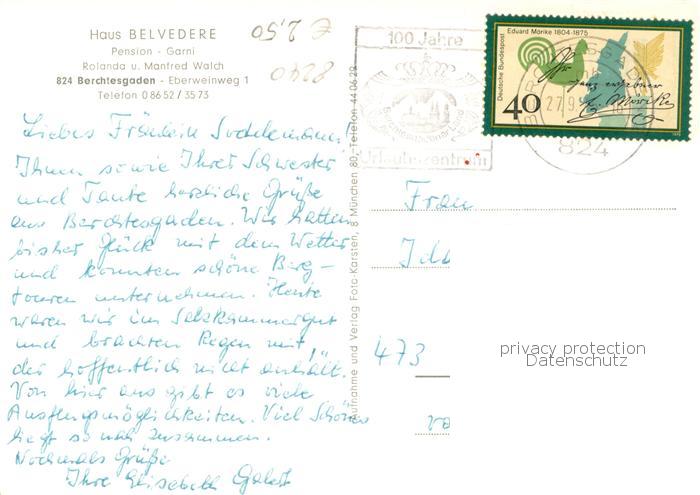 Haus BELVEDERE
Pension - Garni
Rolanda u. Manfred Walch
824 Berchtesgaden - Eberweinweg 1
Telefon 0 86 52 / 35 73
€ 2,50
0428
100 Jahre
Urlaubszentrum
Eduard Mörike 1804-1875
Deutsche Bundespost
40
824
Liebes Fräulein
Ihnen sowie Ihrer Schwester
und Tante herzliche Grüße
aus Berchtesgaden. Wir hatten
bisher Glück mit dem Wetter
und konnten schöne Berg-
touren unternehmen. Heute
waren wir im Salzkammergut
und brachten Regen mit,
der hoffentlich nicht anhält.
Von hier aus gibt es viele
Ausflugsmöglichkeiten. Viel Schönes
liegt so nah zusammen.
Nochmals Grüße
Ihre Elisabeth
Aufnahme und Verlag Foto-Karsten, 8 München 80, Telefon 44 06 29
Frau
Ida
473
privacy protection
Datenschutz